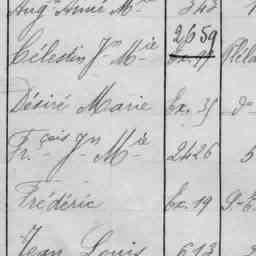 Aug. Aimé M. 343
2659
Célestin Jn Mie Ex. 35 Pléla
Désiré Marie Ex. 35 do
Fr.çois Jn Mie 2426 5
Frédéric Ex. 19 P-E
Jean Louis 613